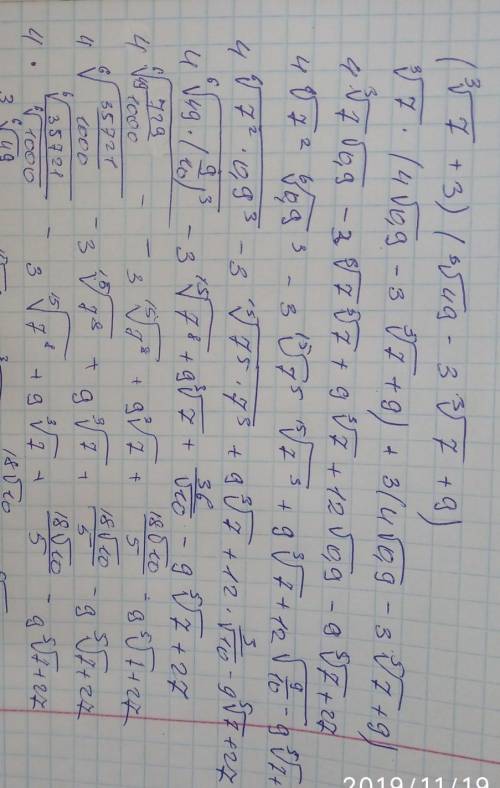 (∛7 + 3)(∛49 - 3∛7 + 9)
∛7 · (4√0,9 - 3⁵√7 + 9) + 3(4√0,9 - 3⁵√7 + 9)
4∛7√0,9 - 3⁵√7∛7 + 9∛7 + 12√0,9 - 9⁵√7 + 27
4⁶√7² ⁶√0,9³ - 3¹⁵√7⁵ ¹⁵√7³ + 9∛7 + 12√(9/10) - 9⁵√7 +
4⁶√(7² · 0,9³) - 3¹⁵√(7⁵ · 7³) + 9∛7 + 12 · 3/√10 - 9⁵√7 + 27
4⁶√(49 · (9/10)³) - 3¹⁵√7⁸ + 9∛7 + 36/√10 - 9⁵√7 + 27
4⁶√(49 729/1000) - 3¹⁵√7⁸ + 9∛7 + 18√10/5 - 9⁵√7 + 27
4⁶√(35721/1000) - 3¹⁵√7⁸ + 9∛7 + 18√10/5 - 9⁵√7 + 27
4 · ⁶√35721/⁶√1000 - 3¹⁵√7⁸ + 9∛7 + 18√10/5 - 9⁵√7 + 27
3⁶√49 18√10
2019/11/19